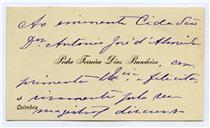 Ao eminente Cidadão
Dr. Antonio José d'Almeida
Pedro Ferreira Dias Bandeira, com
primenta V. Excia e felicita
o vivamente pelo seu
magistral discurso
Coimbra